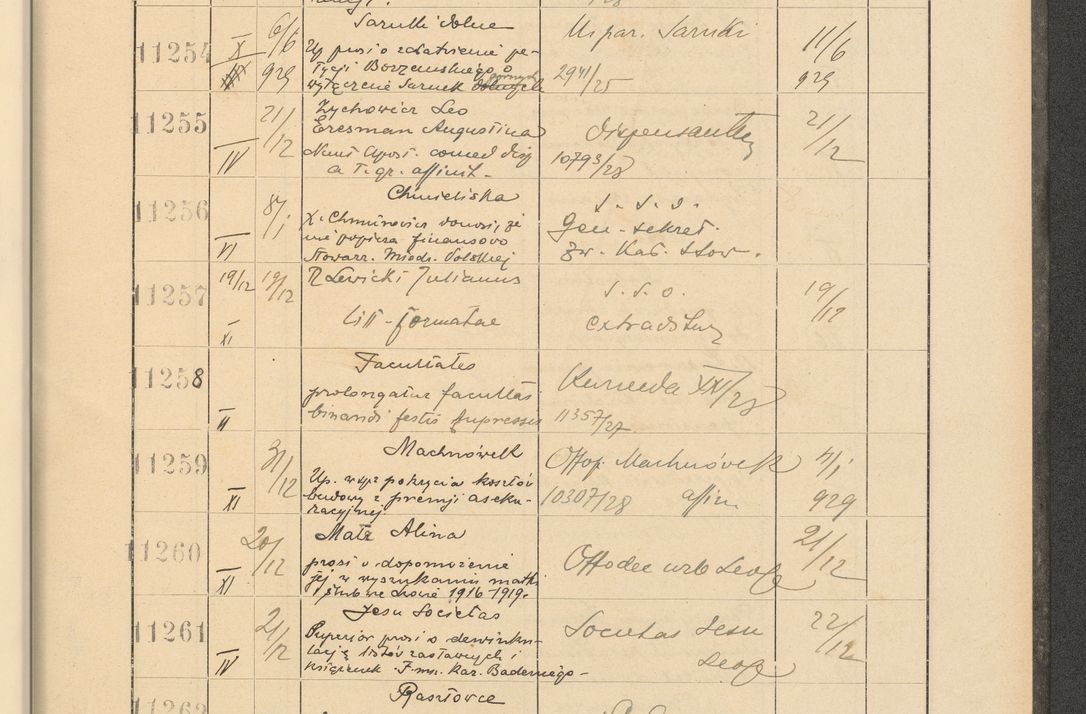 11254 X 6/6 929 Sarnki dolne
Up. prosi o załatwienie pe-
tycji Borzemskiego o
wyłączenie Sarnek górnych
Up. par. Sarnki
2941/25
11/6 929
11255 IV 21/12 Zychowicz Leo
Eresman Augustina
Nunt. Apost. comed disp
a t. gr. affinit.-
10793/28
21/12
11256 VI 8/1 Chmieliska
X. donosi, że
nie popiera finansowo
Stowarz. Młodz. Polskiej
s. s. o.
Gen. sekret.
Zw. Kat. Stow.
11257 XI 19/12 19/12 R Lewicki Julianus
Litt. formatae
s. s. o.
19/12
11258 II Facultates
prolongatur facultas
binandi festis supressis
Kurenda XXI/28
11357/27
11259 XI 31/12 Machnówek
Up. wsp. pokrycia kosztów
budowy z premji aseku-
racyjnej
Offop. Machnówek
10307/28 affirm.
4/1 929
11260 XI 20/12 Matz Alina
prosi o dopomożenie
jej w wyszukaniu matki
i ślub we Lwowie 1916-1919.
Offodec urb Leop
21/12
11261 IV 21/12 Jesu Societas
Superior prosi o dewinku-
lację listów zastawnych i
książeczek F-mu. Kaz. Badeniego-
Societas Jesu
Leop
22/12
11262 Rasztowce